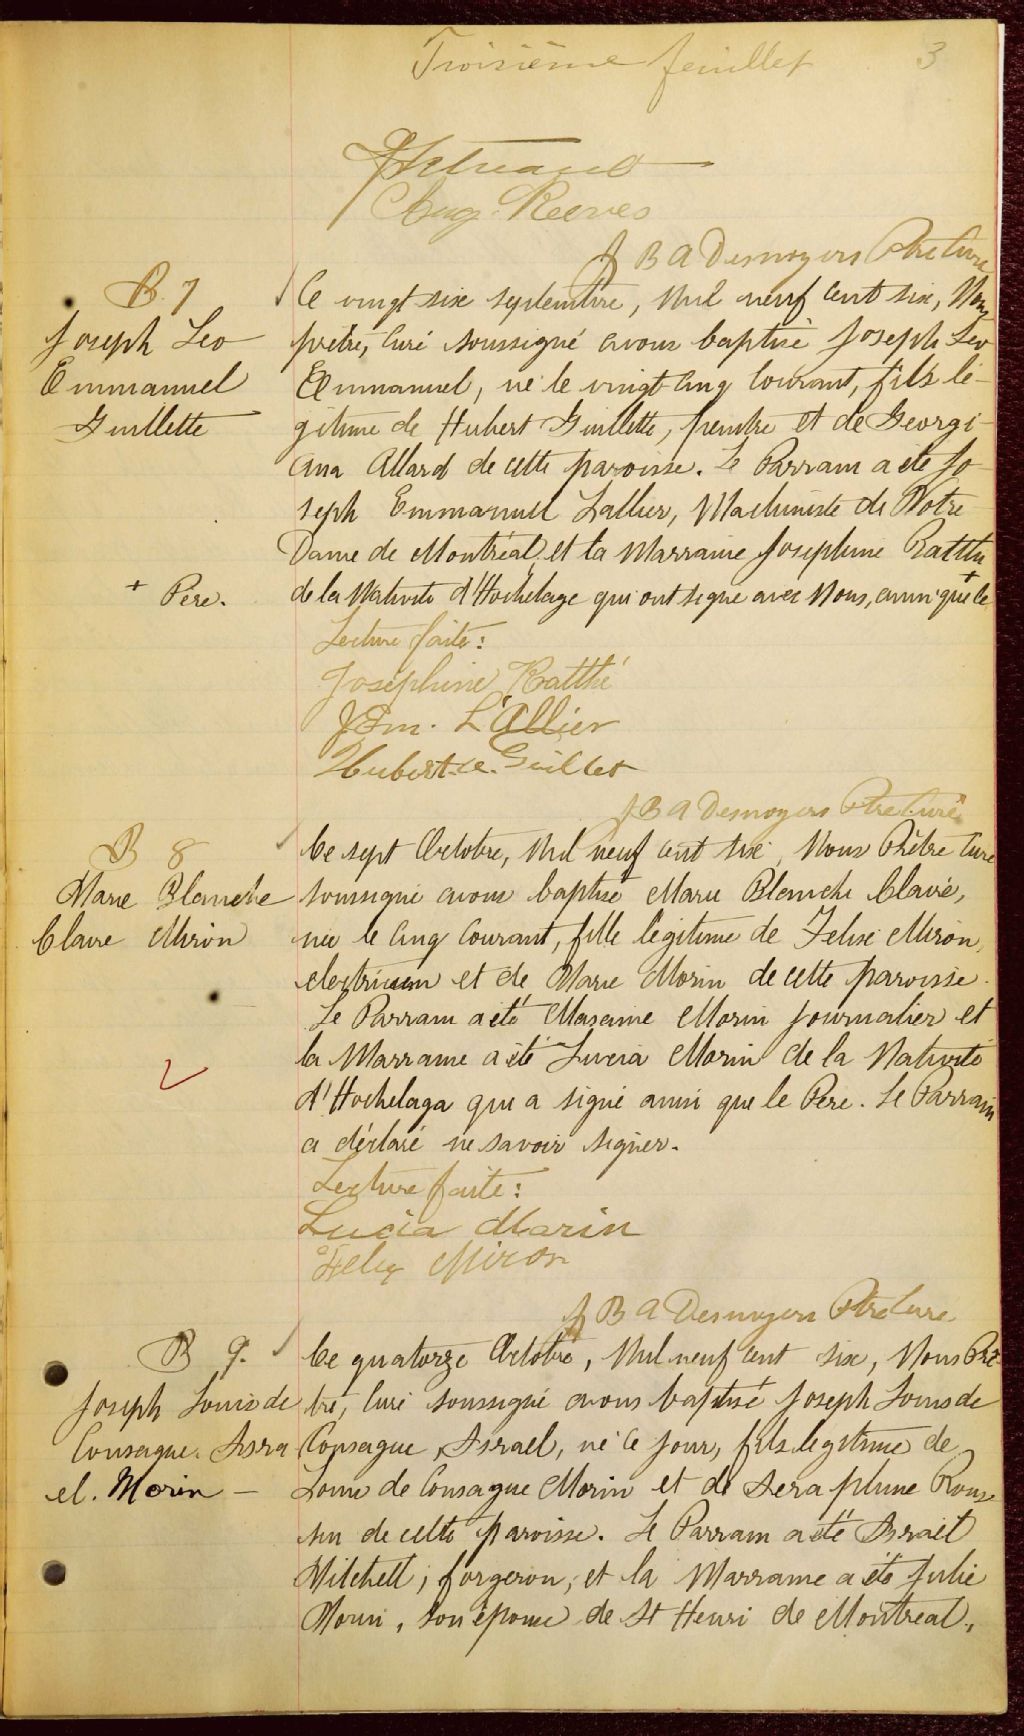 Troisième feuillet 3
Aug. Reeves
J B A Desnoyers Ptre Curé
B. 7
Joseph Leo
Emmanuel
Guillette
+ Père.
Ce vingt six septembre, Mil neuf cent six, Nous
prêtre, curé soussigné avons baptisé Joseph Leo
Emmanuel, né le vingt-cinq courant, fils lé-
gitime de Hubert Guillette, peintre et de Georgi-
ana Allard de cette paroisse. Le Parrain a été Jo-
seph Emmanuel Lallier, Machiniste de Notre
Dame de Montréal, et la Marraine Josephine Ratthé
de la Nativité d'Hochelaga qui ont signé avec Nous, ainsi que + le
Lecture faite:
Joséphine Ratthé
J Em. L'Allier
Hubert Guillet
J B A Desnoyers Ptre Curé
B 8
Marie Blanche
Claire Miron
Ce sept Octobre, Mil neuf cent six, Nous Prêtre Curé
soussigné avons baptisé Marie Blanche Claire,
née le cinq courant, fille légitime de Felix Miron,
electricien et de Marie Morin de cette paroisse.
Le Parrain a été Maxime Morin journalier et
la Marraine a été Lucia Morin de la Nativité
d'Hochelaga qui a signé ainsi que le Père. Le Parrain
a déclaré ne savoir signer.
Lecture faite:
Lucia Morin
Felix Miron
J B A Desnoyers Ptre Curé
B 9.
Joseph Louis de
Consague Isra
el. Morin —
Ce quatorze Octobre, Mil neuf cent six, Nous Prê-
tre, curé soussigné avons baptisé Joseph Louis de
Consague Israel, né ce jour, fils légitime de
Louis de Consague Morin et de Seraphine Rous-
sin de cette paroisse. Le Parrain a été Israel
Mitchell, forgeron, et la Marraine a été Julie
Morin, son épouse de St Henri de Montréal,